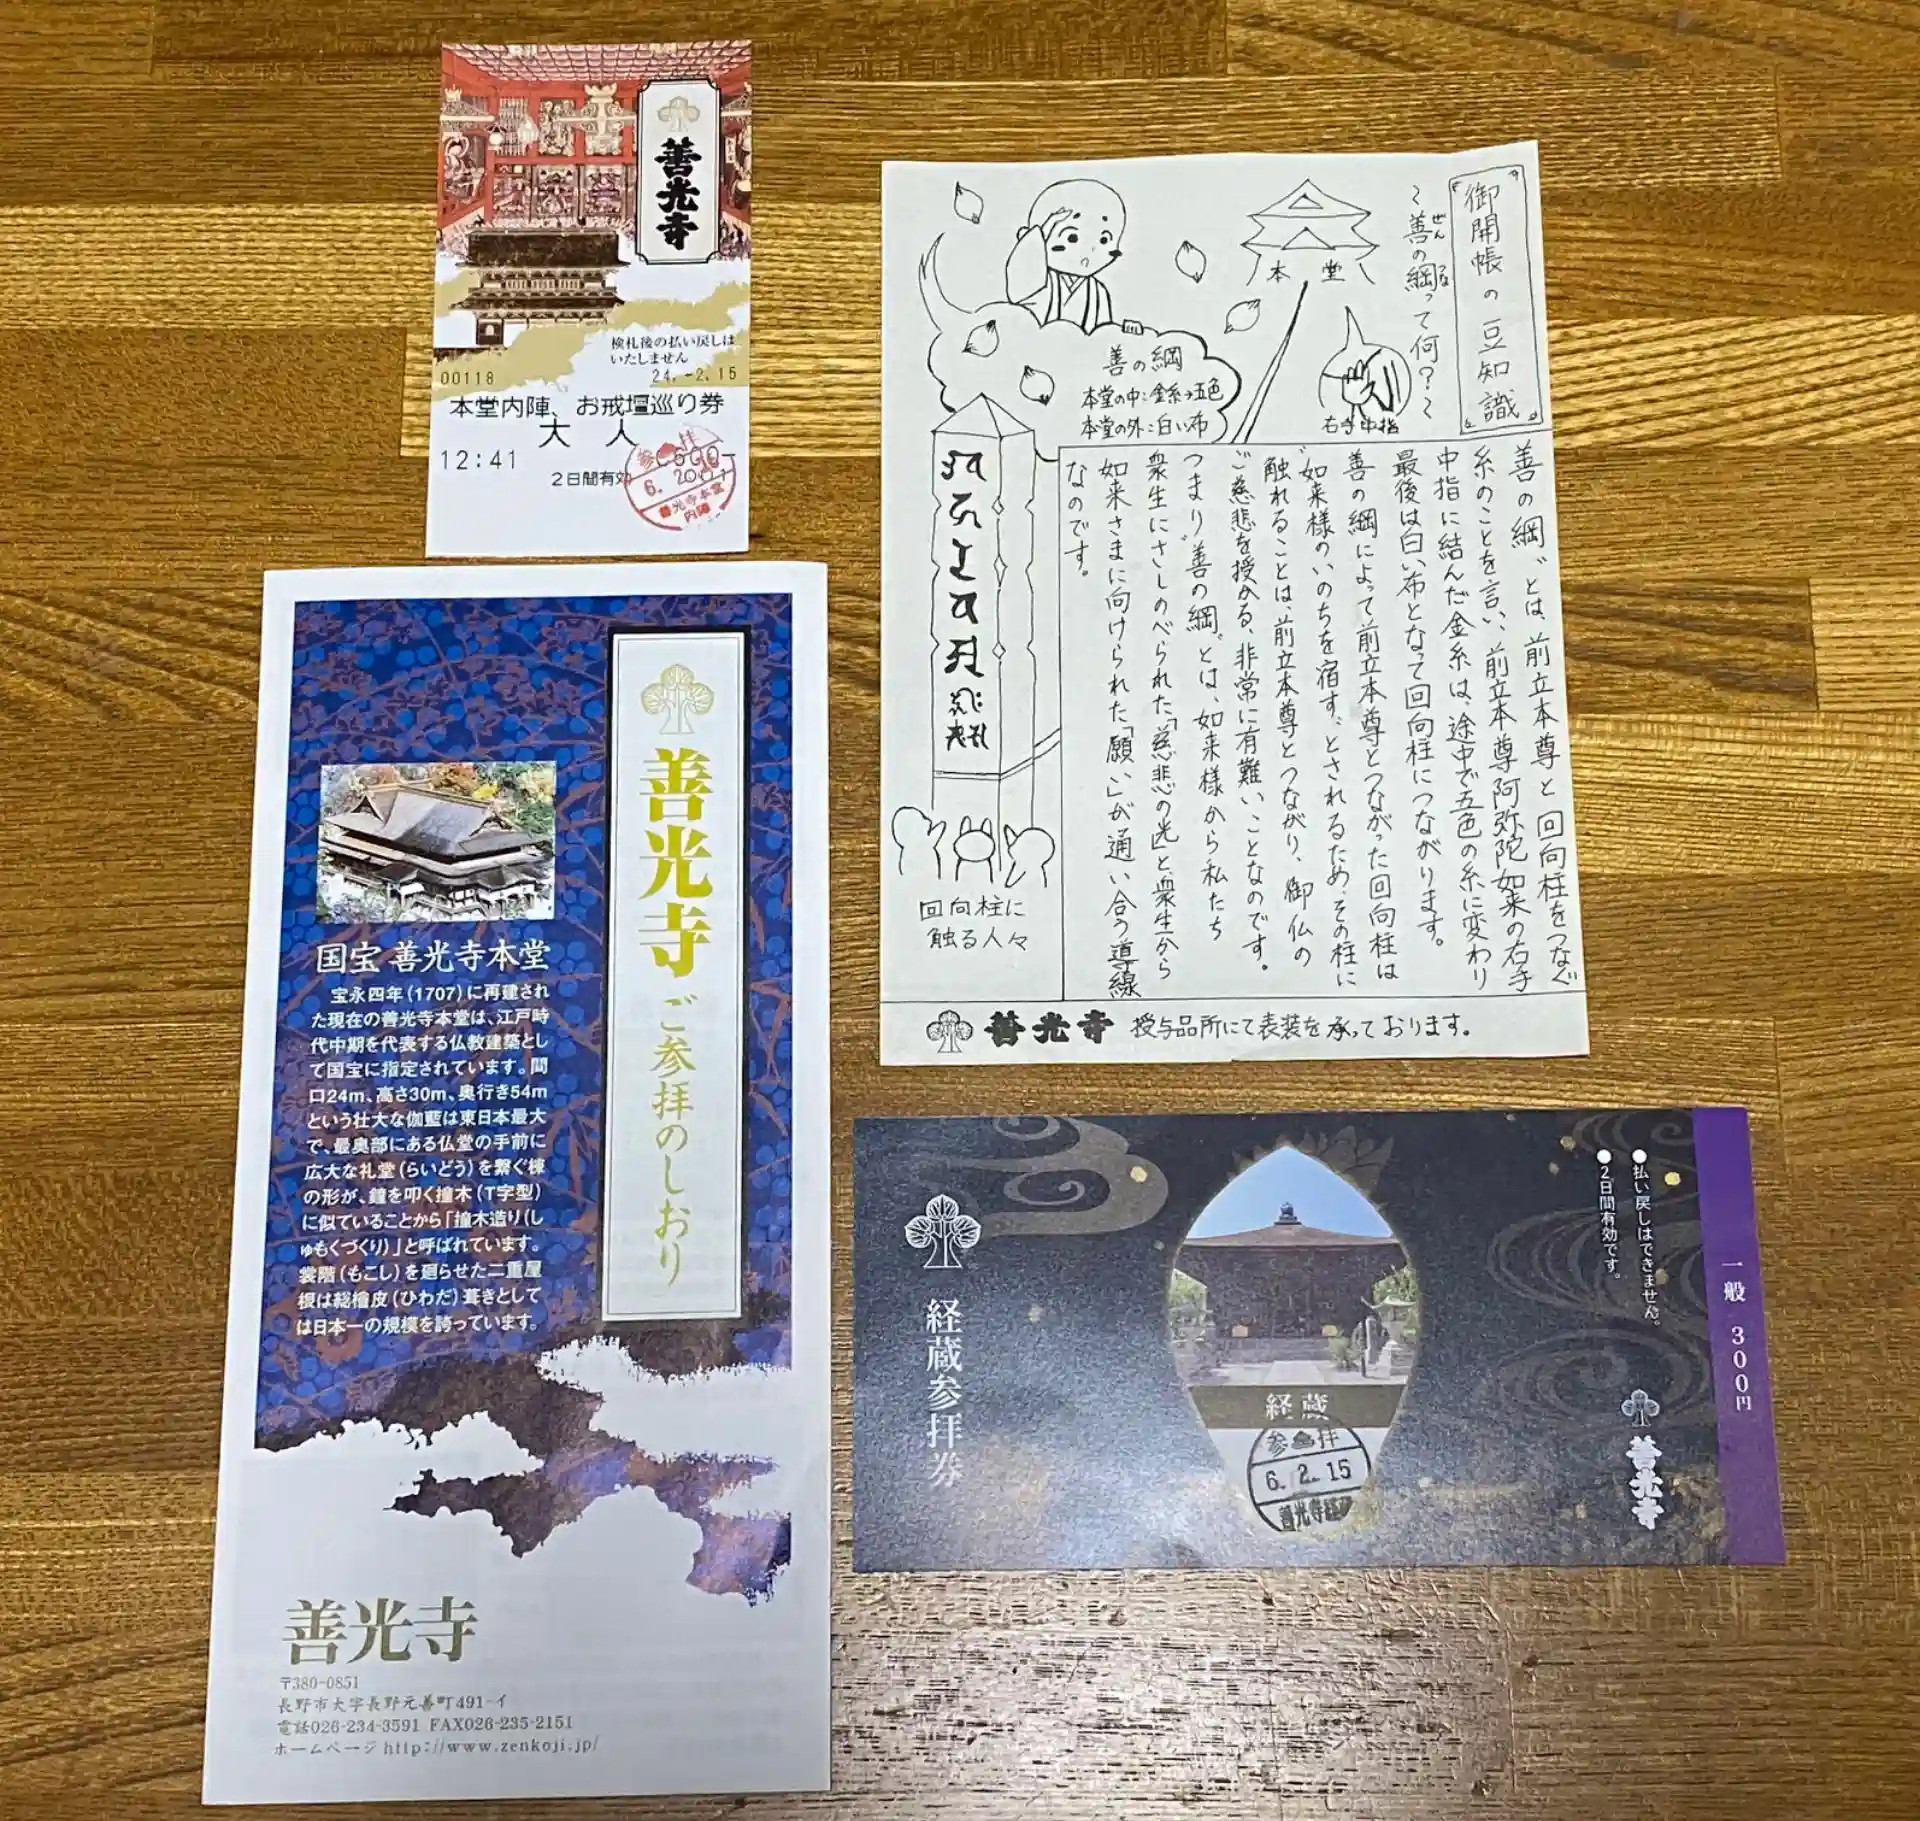 善光寺
検札後の払い戻しは
いたしません
00118
24.-2.15
本堂内陣、お戒壇巡り券
大 人
12:41
2日間有効
善光寺
ご参拝のしおり
国宝 善光寺本堂
宝永四年(1707)に再建され
た現在の善光寺本堂は、江戸時
代中期を代表する仏教建築とし
て国宝に指定されています。間
口24m、高さ30m、奥行き54m
という壮大な伽藍は東日本最大
で、最奥部にある仏堂の手前に
広大な礼堂(らいどう)を繋ぐ棟
の形が、鐘を叩く撞木(T字型)
に似ていることから「撞木造り(し
ゅもくづくり)」と呼ばれています。
裳階(もこし)を廻らせた二重屋
根は総檜皮(ひわだ)葺きとして
は日本一の規模を誇っています。
善光寺
〒380-0851
長野市大字長野元善町491-イ
電話026-234-3591 FAX026-235-2151
ホームページhttp://www.zenkoji.jp/
御開帳の豆知識
~善の綱って何?~
ぜん
つな
本堂
右手中指
善の綱
本堂の中:金糸→五色
本堂の外:白い布
善の綱〟とは、前立本尊と回向柱をつなぐ
糸のことを言い、前立本尊阿弥陀如来の右手
中指に結んだ金糸は、途中で五色の糸に変わり
最後は白い布となって回向柱につながります。
善の綱によって前立本尊とつながった回向柱は
〝如来様のいのちを宿す〟とされるため、その柱に
触れることは、前立本尊とつながり、御仏の
ご慈悲を授かる、非常に有難いことなのです。
つまり〝善の綱〟とは、如来様から私たち
衆生にさしのべられた「慈悲の光」と、衆生から
如来さまに向けられた「願い」が通い合う導線
なのです。
回向柱に
触る人々
善光寺 授与品所にて表装を承っております。
経蔵参拝券
経蔵
参拝
6.2.15
●払い戻しはできません。
●2日間有効です。
善光寺
一般 300円